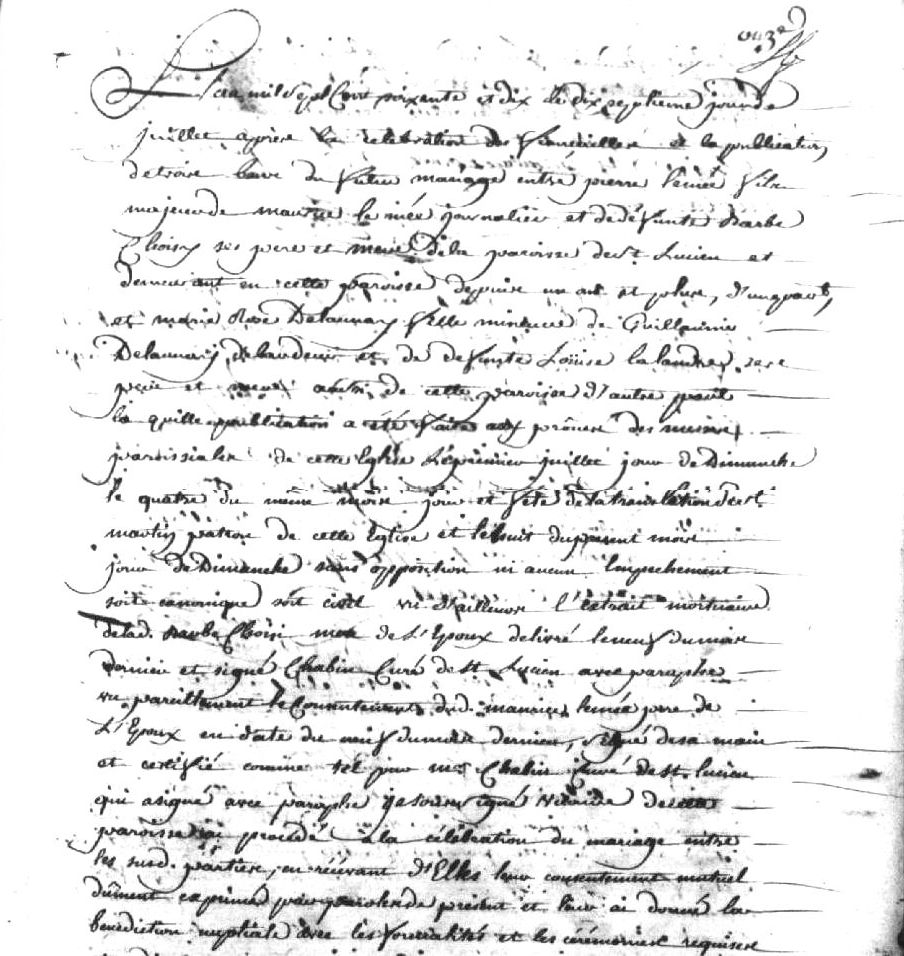 onze
L'an mil sept Cent soixante et dix le dix septieme jour de
juillet apres la celebration des fiancailles et la publication
de trois bans du futur mariage entre pierre lemée fils
majeur de maurice lemée journalier et de defunte Barbe
Choisy ses pere et mere de la paroisse de St Lucien et
demeurant en cette paroisse depuis un an et plus, d'une part,
et marie Rose Delaunay fille mineure de Guillaume
Delaunay et de defunte Louise lalande ses
pere et mere aussi de cette paroisse d'autre part
la quelle publication a été faite aux prônes des messes
paroissiales de cette Eglise le premier juillet jour de Dimanche
le quatre du même mois jour et fête de la translation de St
martin patron de cette Eglise et le huit du present mois
jour de Dimanche sans opposition ni aucun Empechement
soit canonique soit civil vu d'ailleurs l'extrait mortuaire
de lad. Barbe Choisi mere de L'Epoux delivré le neuf du mois
dernier et signé Chabin Curé de St Lucien avec paraphe
vu pareillement le Consentement dud. maurice lemée pere de
L'Epoux en date du neuf du mois dernier, signé de sa main
et certifié comme tel par mr Chabin Curé de St. Lucien
qui a signé avec paraphe je soussigné Vicaire de cette
paroisse ai procédé à la célébration du mariage entre
les susd. parties, en recevant d'Elles leur consentement mutuel
dûment exprimé par paroles de présent et leur ai donné la
bénédiction nuptiale avec les formalités et les cérémonies requises